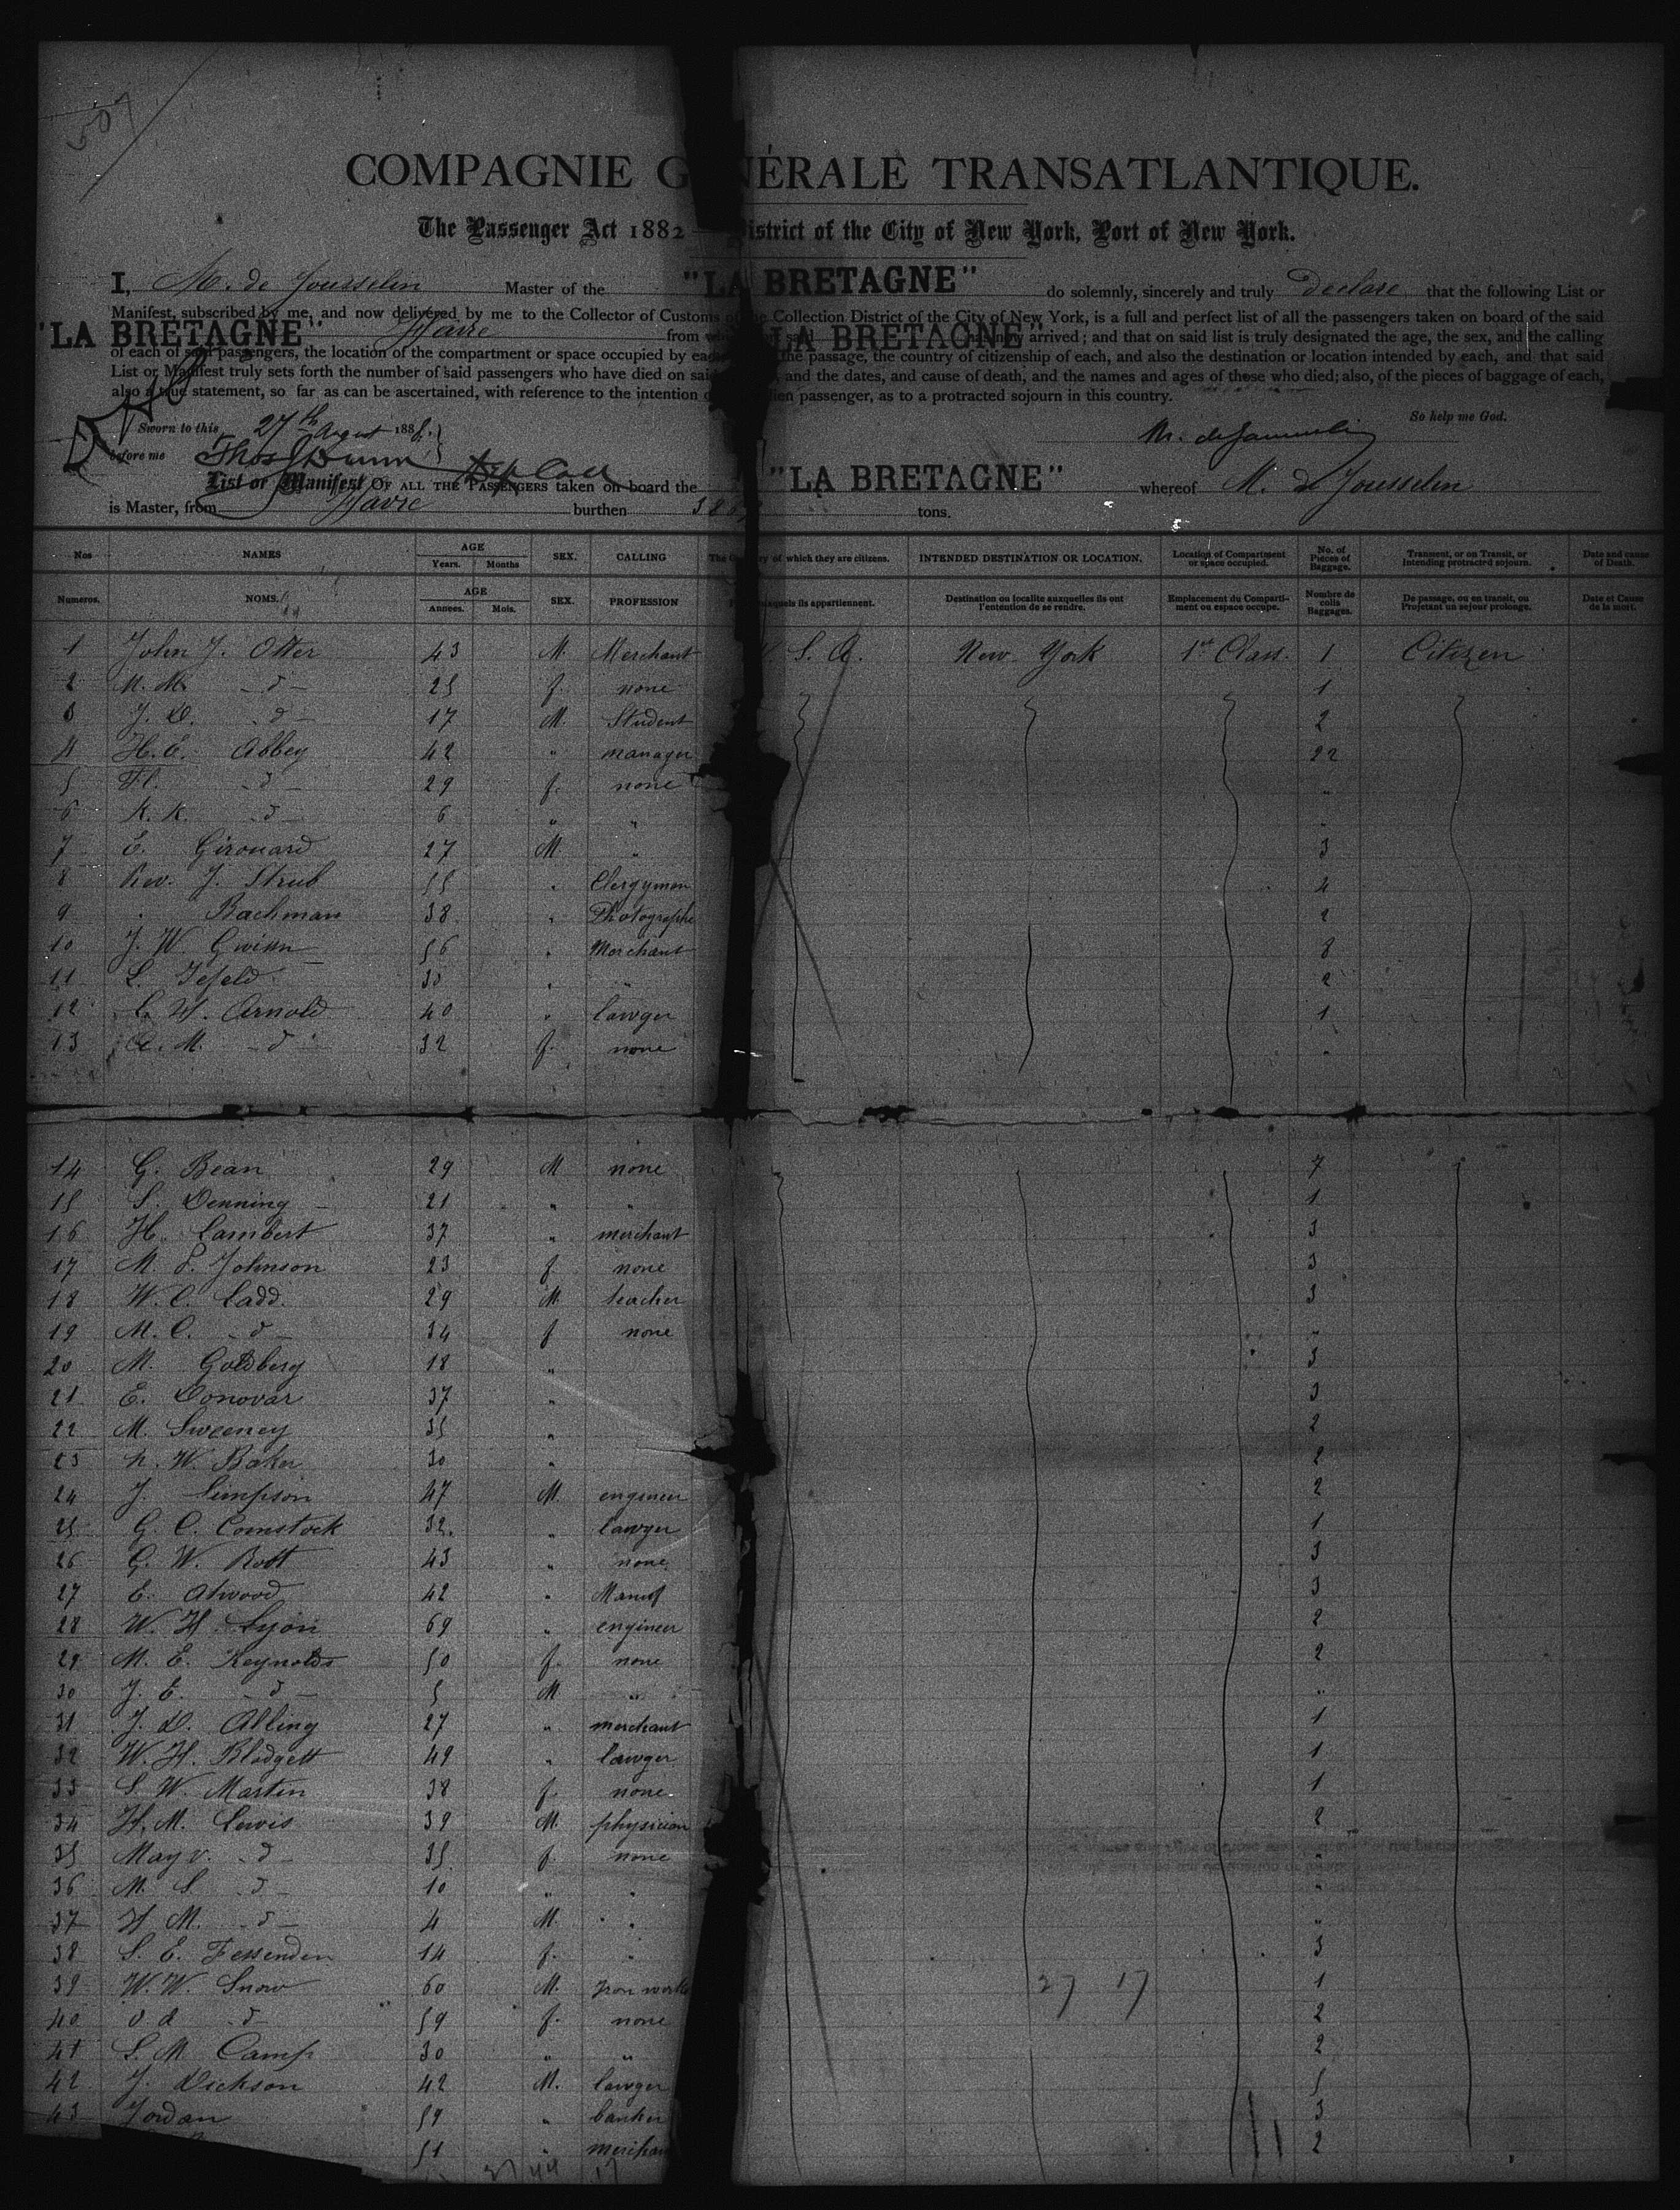 507
COMPAGNIE G NÉRALE TRANSATLANTIQUE.
The Passenger Act 1882 — District of the City of New York, Port of New York.
I, M. de Jousselin Master of the "LA BRETAGNE" do solemnly, sincerely and truly declare that the following List or
Manifest, subscribed by me, and now delivered by me to the Collector of Customs of the Collection District of the City of New York, is a full and perfect list of all the passengers taken on board of the said
"LA BRETAGNE" Havre from "LA BRETAGNE" arrived; and that on said list is truly designated the age, the sex, and the calling
of each of said passengers, the location of the compartment or space occupied by each the passage, the country of citizenship of each, and also the destination or location intended by each, and that said
List or Manifest truly sets forth the number of said passengers who have died on said and the dates, and cause of death, and the names and ages of those who died; also, of the pieces of baggage of each,
also a true statement, so far as can be ascertained, with reference to the intention passenger, as to a protracted sojourn in this country.
So help me God.
Sworn to this 27th August 1888.
before me Thos Dunn Dep Coll
List or Manifest OF ALL THE PASSENGERS taken on board the "LA BRETAGNE" whereof M. de Jousselin
is Master, from Havre burthen tons.
Nos NAMES AGE Years. Months SEX. CALLING The of which they are citizens. INTENDED DESTINATION OR LOCATION. Location of Compartment or space occupied. No. of Pieces of Baggage. Transent, or on Transit, or intending protracted sojourn. Date and cause of Death.
Numeros. NOMS. AGE Annees. Mois. SEX. PROFESSION auxquels ils appartiennent. Destination ou localite auxquelles ils ont l'entention de se rendre. Emplacement du Compartiment ou espace occupe. Nombre de colis Baggages. De passage, ou en transit, ou Projetant un sejour prolonge. Date et Cause de la mort.
1 John J. Otter 43 M. Merchant U. S. A. New York 1st Class. 1 Citizen
2 M. M. - d - 25 f. none 1
3 J. D. - d - 17 M. Student 2
4 H. E. Abbey 42 " manager 22
5 Fl. - d - 29 f. none "
6 K. K. - d - 6 " " "
7 E. Girouard 27 M " 3
8 Rev. J. Strub 55 " Clergyman 4
9 " Bachman 38 " Photographe 2
10 J. W. Gwinn 56 " Merchant 8
11 L. 33 " " 2
12 C. H. Arnold 40 " lawyer 1
13 A. M. - d - 32 f. none "
14 G. Bean 29 M none 7
15 S. Denning 21 " " 1
16 H. Lambert 37 " merchant 3
17 M. L. Johnson 23 f none 3
18 W. C. Ladd. 29 M. teacher 3
19 M. C. - d - 34 f none "
20 M. Goldberg 18 " 3
21 E. Donovar 37 " 3
22 M. Sweeney 35 " 2
23 N. W. Baker 30 " 2
24 J. Simpson 47 M. engineer 2
25 G. C. Comstock 32. " lawyer 1
26 G. W. Bott 43 " none 3
27 E. Atwood 42 " Manuf 3
28 W. H. Lyon 69 " engineer 2
29 M. E. Reynolds 50 f. none 2
30 J. E. - d - 5 M " "
31 J. D. Alling 27 " merchant 1
32 W. H. Blodgett 49 " lawyer 1
33 S. W. Martin 38 f. none 1
34 H. M. Lewis 39 M. physician 2
35 May v. - d - 35 f. none "
36 M. S. - d - 10 " " "
37 H. M. - d - 4 M. " "
38 S. E. Fessenden 14 f. " 3
39 W. W. Snow 60 M. Iron works 1
27 17
40 - d - 59 f. none 2
41 S. M. Camp 30 " " 2
42 J. Dickson 42 M. lawyer 5
43 Jordan 59 " banker 3
51 " merchan 2